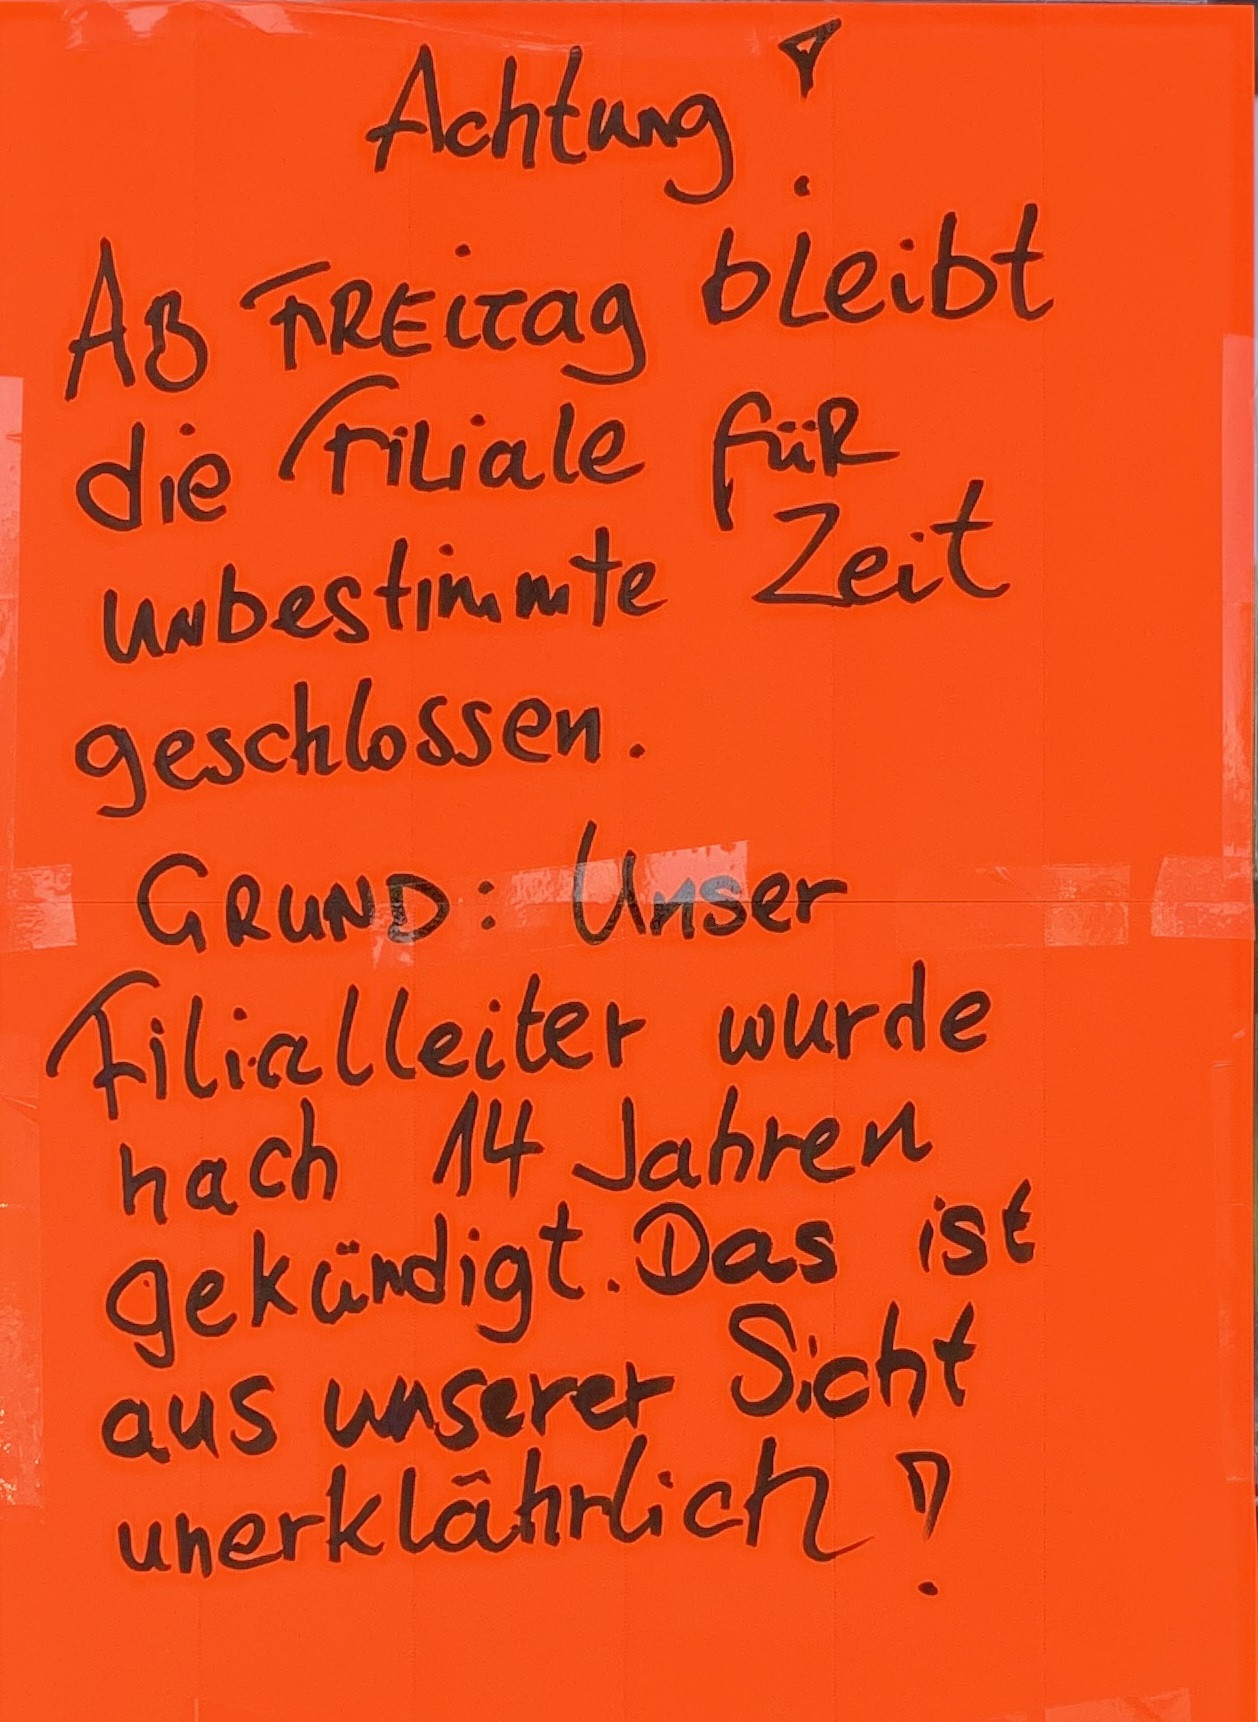 Achtung!
AB FREitag bleibt
die Filiale füR
unbestimmte Zeit
geschlossen.
GRUND: Unser
Filialleiter wurde
nach 14 Jahren
gekündigt. Das ist
aus unserer Sicht
unerklährlich!